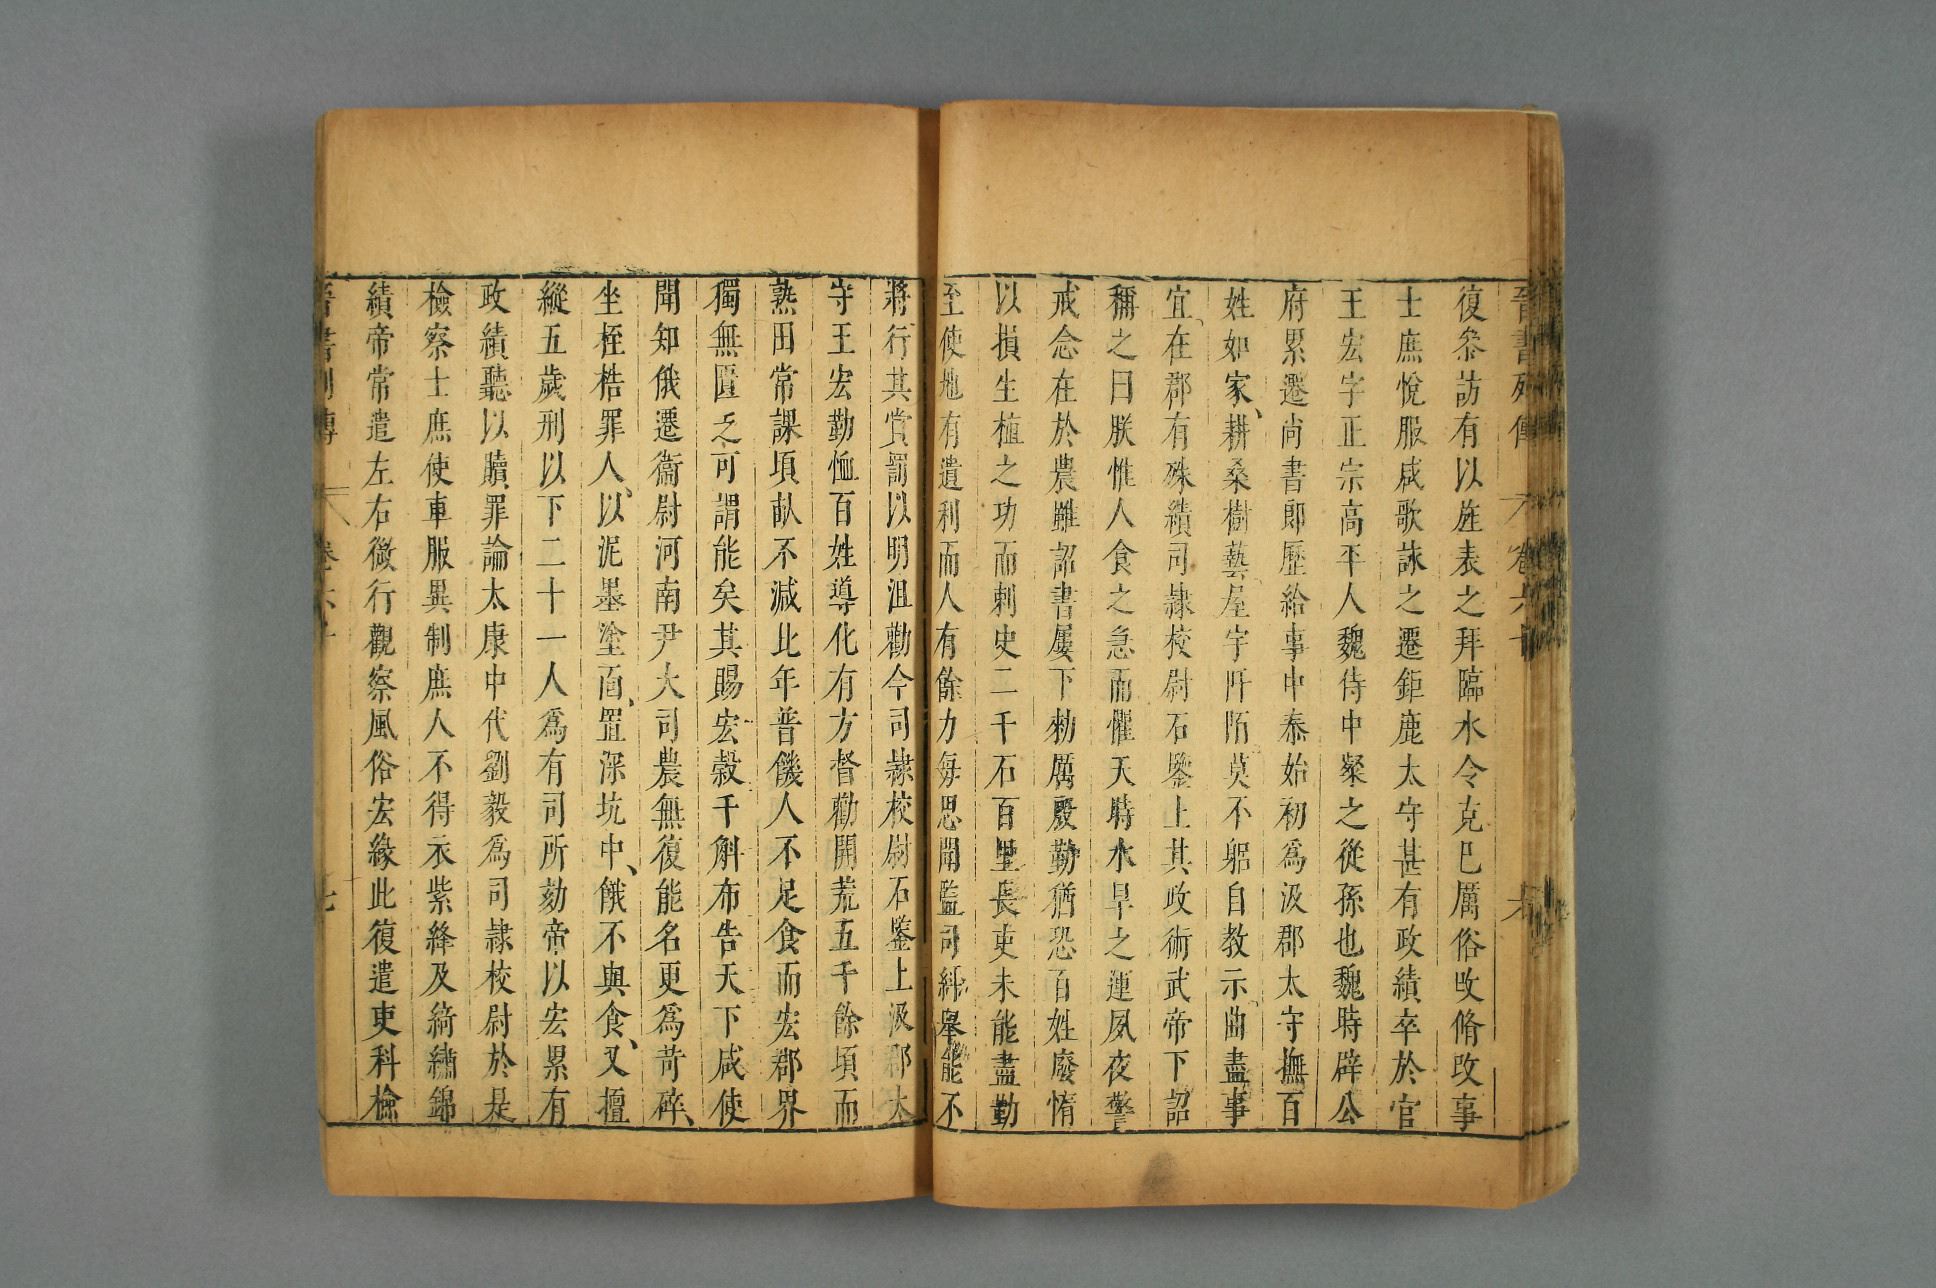 晉書列傳 卷六十 六
復參訪有以旌表之拜臨水令克己厲俗改脩政事
士庶悅服咸歌詠之遷鉅鹿太守甚有政績卒於官
王宏字正宗高平人魏侍中粲之從孫也魏時辟公
府累遷尚書郎歷給事中泰始初爲汲郡太守撫百
姓如家、耕桑樹藝屋宇阡陌莫不躬自教示曲盡事
宜、在郡有殊績司隷校尉石鑒上其政術武帝下詔
稱之曰朕惟人食之急而懼天時水旱之運夙夜警
戒念在於農雖詔書屢下勑厲殷勤猶恐百姓廢惰
以損生植之功而刺史二千石百里長吏未能盡勤
至使地有遺利而人有餘力每思聞監司糾舉能不
將行其賞罰以明沮勸今司隷校尉石鑒上汲郡太
守王宏勤恤百姓導化有方督勸開荒五千餘頃而
熟田常課頃畝不減比年普饑人不足食而宏郡界
獨無匱乏可謂能矣其賜宏穀千斛布告天下咸使
聞知俄遷衞尉河南尹大司農無復能名更爲苛碎、
坐桎梏罪人、以泥墨塗面、置深坑中、餓不與食、又擅
縱五歲刑以下二十一人爲有司所劾帝以宏累有
政績聽以贖罪論太康中代劉毅爲司隷校尉於是
檢察士庶使車服異制庶人不得衣紫絳及綺繡錦
績帝常遣左右微行觀察風俗宏緣此復遣吏科檢
晉書列傳 卷六十 七